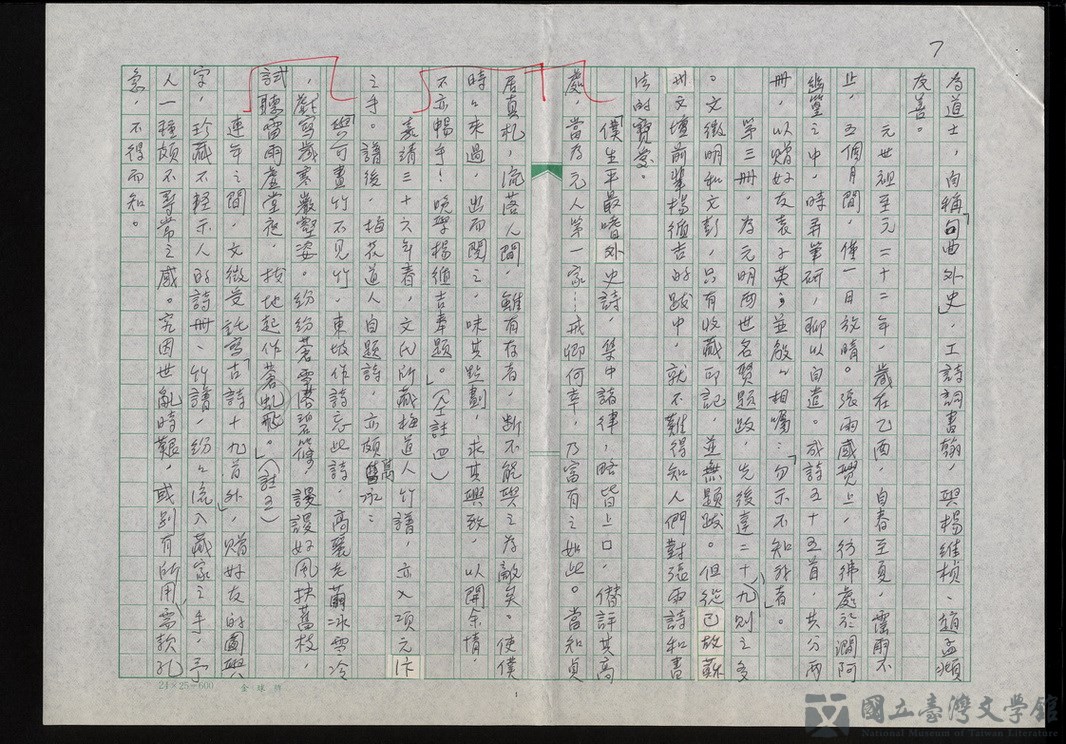 7
為道士，自稱「句曲外史」，工詩詞書翰，與楊維楨、趙孟頫
友善。
元世祖至元二十二年，歲在乙酉，自春至夏，霪雨不
止，五個月間，僅一日放晴。張雨感覺上，彷彿處於澗阿
幽篁之中，時弄筆研，聊以自遣。成詩五十五首，共分兩
冊，以贈好友袁子英，並殷殷相囑：「勿示不知我者。」
第三冊，為元明兩世名賢題跋，先後達二十九則之多
。文徵明和文彭，只有收藏印記，並無題跋。但從已故蘇
州文壇前輩楊循吉的跋中，就不難得知人們對張雨詩和書
法的寶愛。
僕生平最嗜外史詩，集中諸律，略皆上口，僭評其高
處，當為元人第一家…戒卿何幸，乃富有之如此。當知貞
居真札，流落人間，雖有存者，斷不能與之為敵矣。使僕
時時來過，出而閱之，味其點劃，求其興致，以開余情，
不亦暢乎！晚學楊循吉奉題。」（註四）
嘉靖三十六年春，文氏所藏梅道人竹譜，亦入項元汴
之手。譜後，梅花道人自題詩，亦頗蒼涼：
「與可畫竹不見竹，東坡作詩忘此詩，高麗老繭冰雪冷
，戲寫歲寒巖壑姿。紛紛蒼雪落碧篠，謖謖好風扶舊枝，
試聽雷雨虛堂夜，拔地起作蒼虬飛。」（註五）
連年之間，文徵受託寫「古詩十九首」外，贈好友的圖與
字，珍藏不輕示人的詩冊、竹譜，紛紛流入藏家之手，予
人一種頗不尋常之感。究因世亂時艱，或別有所用，需款孔
急，不得而知。
24×25=600
金球牌
1
國立臺灣文學館
National Museum of Taiwan Literature